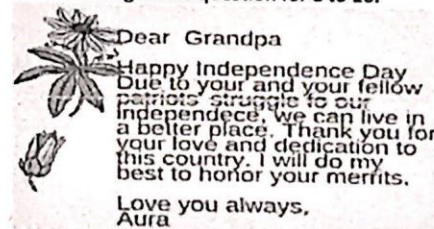 Dear Grandpa
Happy Independence Day
Due to your and your fellow
patriots' struggle to our
independece, we can live in
a better place. Thank you for
your love and dedication to
this country. I will do my
best to honor your merrits.
Love you always,
Aura